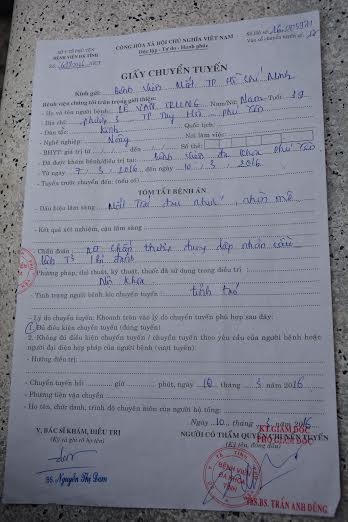 SỞ Y TẾ PHÚ YÊN
BỆNH VIỆN ĐK TỈNH
CỘNG HÒA XÃ HỘI CHỦ NGHĨA VIỆT NAM
Độc lập - Tự do - Hạnh phúc
Số Hồ sơ
Vào sổ chuyển tuyến số
GIẤY CHUYỂN TUYẾN
Kính gửi: Bệnh viện Mắt TP Hồ Chí Minh
Bệnh viện chúng tôi trân trọng giới thiệu:
- Họ và tên người bệnh: LÊ VĂN Nam/Nữ: Nam Tuổi:
- Địa chỉ: phường 5 TP Tuy Hòa, Phú Yên
- Dân tộc: Kinh Quốc tịch:
- Nghề nghiệp: Nông Nơi làm việc:
- BHYT: giá trị từ / / đến / / Số thẻ:
- Đã được khám bệnh/điều trị tại: Bệnh viện đa khoa Phú Yên
- Từ ngày 7 / 3 / 2016 đến ngày 10 / 3 / 2016
- Tuyến trước chuyển đến: (nếu có)
TÓM TẮT BỆNH ÁN
- Dấu hiệu lâm sàng: Mắt Trái đau nhức, nhìn mờ
- Kết quả xét nghiệm, cận lâm sàng
- Chẩn đoán: chấn thương đụng dập nhãn cầu
- Phương pháp, thủ thuật, kỹ thuật, thuốc đã sử dụng trong điều trị
Nội khoa
- Tình trạng người bệnh lúc chuyển tuyến: tỉnh táo
- Lý do chuyển tuyến: Khoanh tròn vào lý do chuyển tuyến phù hợp sau đây:
1. Đủ điều kiện chuyển tuyến (đúng tuyến)
2. Không đủ điều kiện chuyển tuyến / chuyển tuyến theo yêu cầu của người bệnh hoặc
người đại diện hợp pháp của người bệnh (vượt tuyến).
- Hướng điều trị:
- Chuyển tuyến hồi giờ phút, ngày 10 tháng 3 năm 2016
- Phương tiện vận chuyển
- Họ tên, chức danh, trình độ chuyên môn của người hộ tống:
Ngày 10 tháng 3 năm 2016
Y, BÁC SĨ KHÁM, ĐIỀU TRỊ
(Ký và ghi rõ họ tên)
NGƯỜI CÓ THẨM QUYỀN CHUYỂN TUYẾN
KT.GIÁM ĐỐC
PHÓ GIÁM ĐỐC
BỆNH VIỆN
ĐA KHOA
TỈNH
BS. Nguyễn Thị Đam
ThS.BS. TRẦN ANH DŨNG